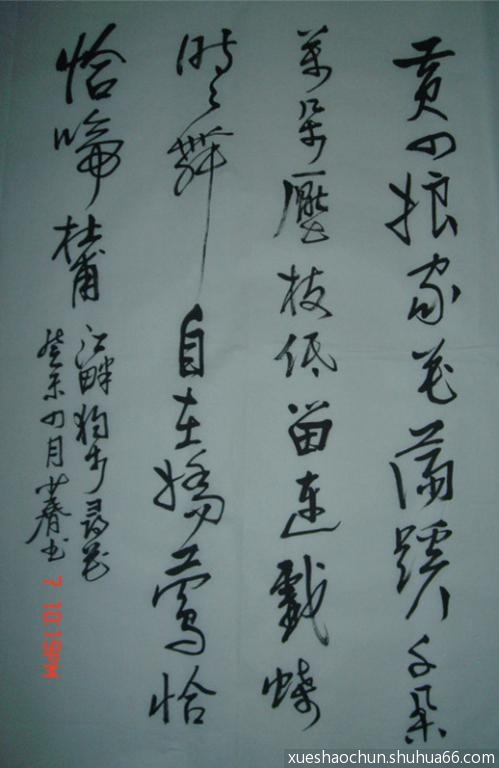 黄四娘家花滿蹊千朵
萬朵壓枝低留連戲蝶
時々舞自在嬌鶯恰
恰啼 杜甫 江畔獨步尋花
癸未四月少春书
7 10:19PM
xueshaochun.shuhua66.com